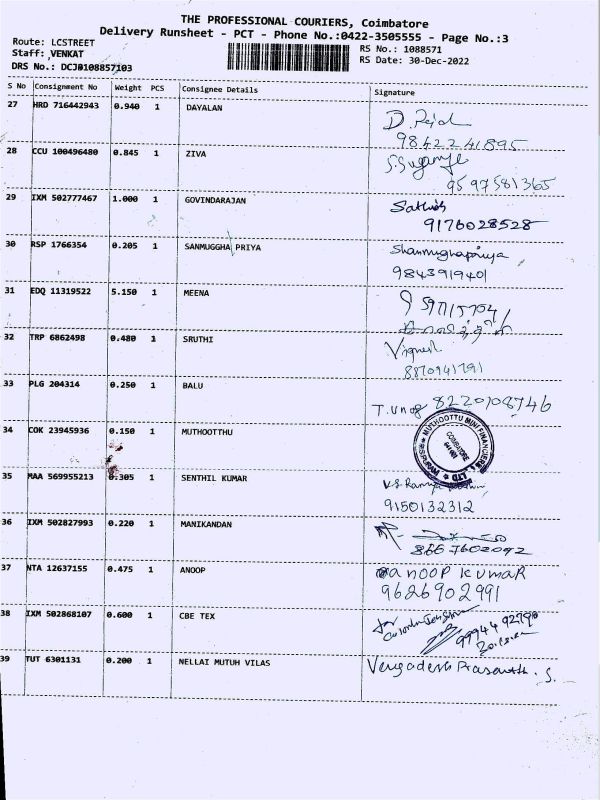 THE PROFESSIONAL COURIERS, Coimbatore
Delivery Runsheet - PCT - Phone No.:0422-3505555 - Page No.:3
Route: LCSTREET
RS No.: 1088571
Staff: VENKAT
RS Date: 30-Dec-2022
DRS No.: DCJB108857103
S No Consignment No Weight PCS Consignee Details Signature
27 HRD 716442943 0.940 1 DAYALAN
9842241895
28 CCU 100496480 0.845 1 ZIVA
9597581365
29 IXM 502777467 1.000 1 GOVINDARAJAN Sathish
9176028528
30 RSP 1766354 0.205 1 SANMUGGHA PRIYA Shanmughapriya
9843919401
31 EDQ 11319522 5.150 1 MEENA
32 TRP 6862498 0.480 1 SRUTHI Vignesh
8870941791
33 PLG 204314 0.250 1 BALU
8220108746
34 COK 23945936 0.150 1 MUTHOOTTHU
MUTHOOTTU MINI FINANCIERS LTD
COIMBATORE
35 MAA 569955213 0.305 1 SENTHIL KUMAR
9150132312
36 IXM 502827993 0.220 1 MANIKANDAN
8667602092
37 NTA 12637155 0.475 1 ANOOP ANOOP KUMAR
9626902991
38 IXM 502868107 0.600 1 CBE TEX for
39 TUT 6301131 0.200 1 NELLAI MUTUH VILAS Vengadesh Prasanth. S.